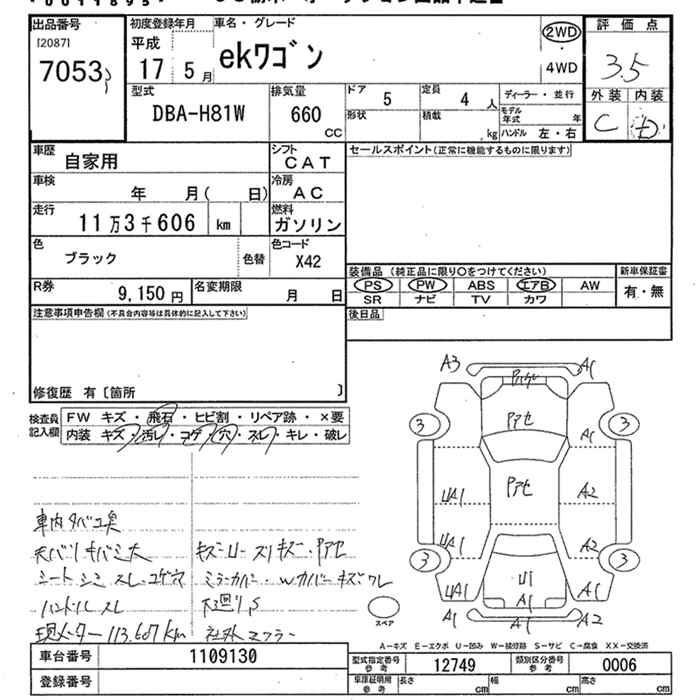 出品番号 [2087] 7053
初度登録年月 平成 17 5月
車名・グレード ekワゴン
2WD
4WD
評価点 3.5
外装 内装
C D
型式 DBA-H81W
排気量 660 CC
ドア 5
定員 4 人
形状
積載 kg
ディーラー・並行
モデル年式 年
ハンドル 左・右
車歴 自家用
シフト CAT
セールスポイント(正常に機能するものに限ります)
車検 年 月( 日)
冷房 AC
走行 11万3千606 km
燃料 ガソリン
色 ブラック
色替
色コード X42
装備品(純正品に限り○をつけてください)
新車保証書
PS PW ABS エアB AW
SR ナビ TV カワ
有・無
R券 9,150円
名変期限 月 日
後日品
注意事項申告欄(不具合内容等は具体的に記入して下さい)
修復歴 有〔箇所 〕
検査員記入欄
FW キズ・飛石・ヒビ割・リペア跡・×要
内装 キズ・汚レ・コゲ・穴・スレ・キレ・破レ
車内タバコ臭
天バリキバミ大
シートシミ スレ・コゲ穴
ハンドルスレ
現メーター 113.607km
キズ・U・スリキズ・Pアセ
ミラーカバー・Wカバーキズワレ
下廻りS
社外マフラー
A3 A1
Pハゲ
3 3
Pアセ
A1
Pアセ
UA1 A2
UA1 A2
3 3
U1
UA1 A1 A1
A1 A1 A2
スペア
A-キズ E-エクボ U-凹み W-補修跡 S-サビ C-腐食 XX-交換済
車台番号 1109130
登録番号
型式指定番号 参考 12749
類別区分番号 参考 0006
車庫証明用 参考 長さ cm 幅 cm 高さ cm